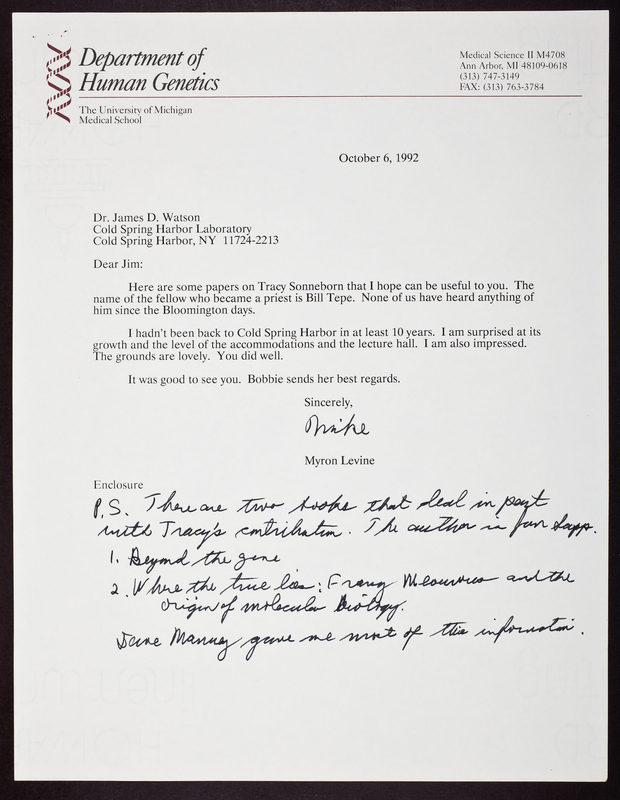 Department of
Human Genetics
The University of Michigan
Medical School
Medical Science II M4708
Ann Arbor, MI 48109-0618
(313) 747-3149
FAX: (313) 763-3784
October 6, 1992
Dr. James D. Watson
Cold Spring Harbor Laboratory
Cold Spring Harbor, NY 11724-2213
Dear Jim:
Here are some papers on Tracy Sonneborn that I hope can be useful to you. The
name of the fellow who became a priest is Bill Tepe. None of us have heard anything of
him since the Bloomington days.
I hadn't been back to Cold Spring Harbor in at least 10 years. I am surprised at its
growth and the level of the accommodations and the lecture hall. I am also impressed.
The grounds are lovely. You did well.
It was good to see you. Bobbie sends her best regards.
Sincerely,
Mike
Myron Levine
Enclosure
P.S. There are two books that deal in part
with Tracy's contribution. The author is Jan Sapp.
1. Beyond the gene
2. Where the true lies: Franz and the
origin of molecular biology.
gave me most of this information.